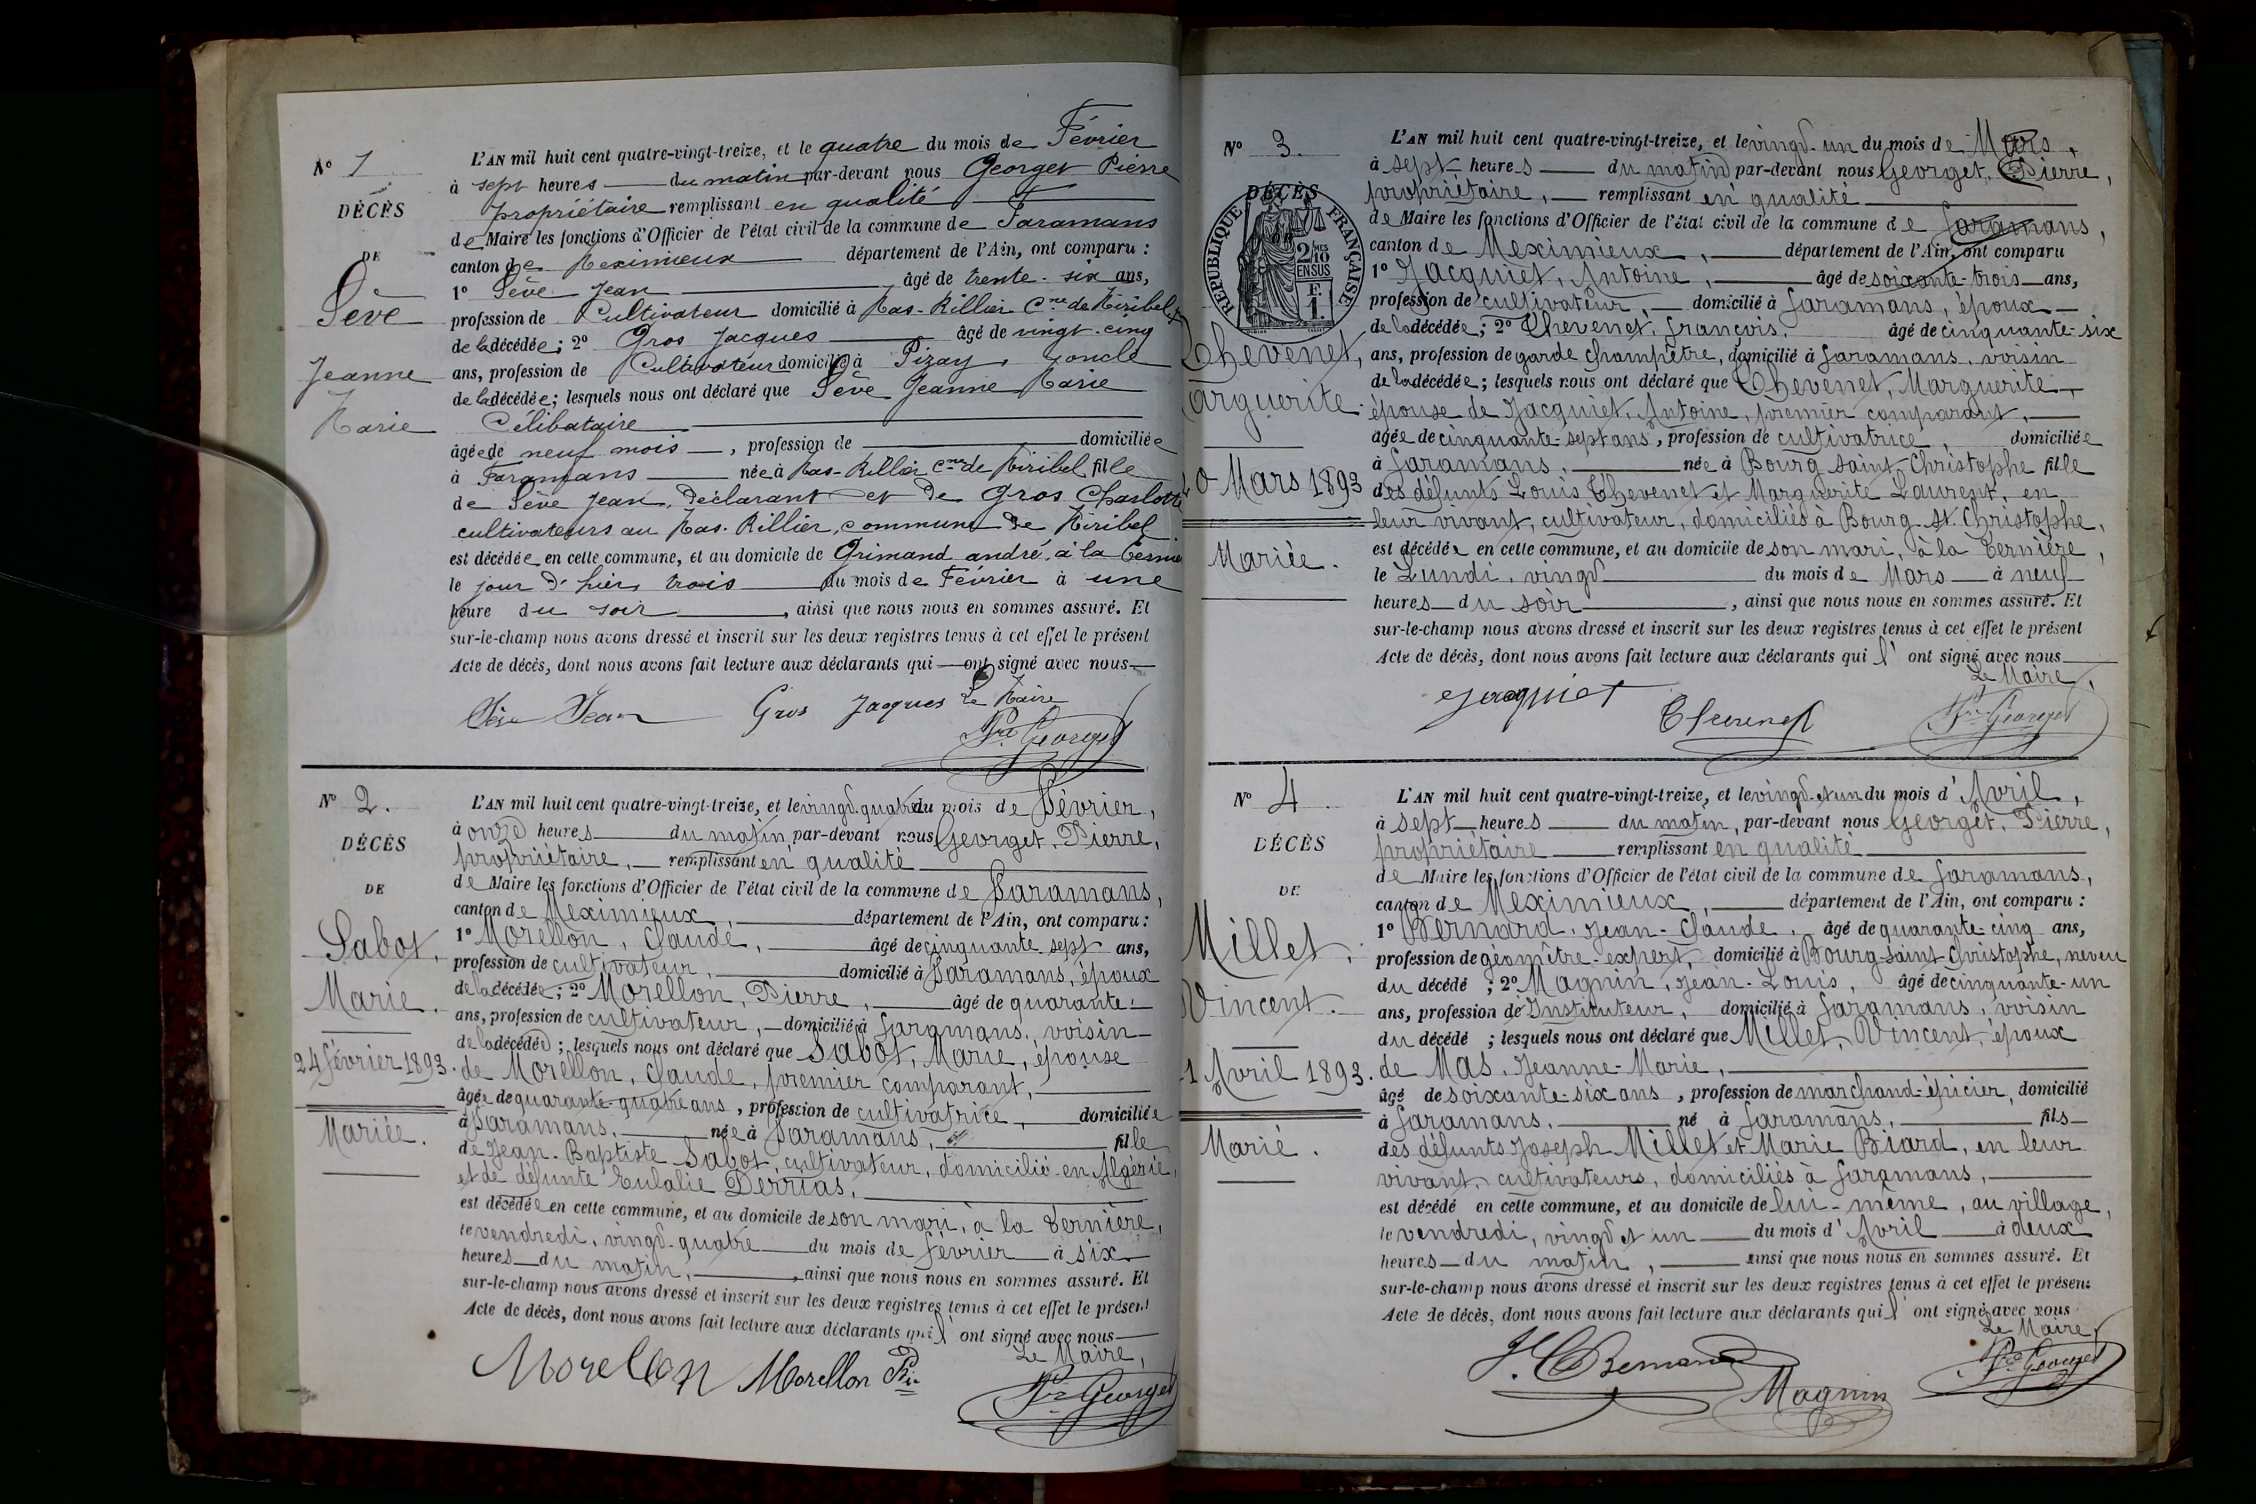 N° 1
DÉCÈS
DE
Sève
Jeanne
Marie
L'AN mil huit cent quatre-vingt-treize, et le quatre du mois de Février
à sept heures du matin par-devant nous Georget Pierre
propriétaire remplissant en qualité
de Maire les fonctions d'Officier de l'état civil de la commune de Faramans
canton de Meximieux département de l'Ain, ont comparu :
1° Sève Jean âgé de trente-six ans,
profession de Cultivateur domicilié à Mas-Rillier Cne de Miribel
de la décédée; 2° Gros Jacques âgé de vingt-cinq
ans, profession de Cultivateur domicilié à Pizay, oncle
de la décédée; lesquels nous ont déclaré que Sève Jeanne Marie
Célibataire
âgée de neuf mois, profession de domiciliée
à Faramans née à Mas-Rillier Cne de Miribel fille
de Sève Jean, déclarant et de Gros Charlotte
cultivateurs au Mas-Rillier, commune de Miribel
est décédée en cette commune, et au domicile de Grimand andré, à la
le jour d'hier trois du mois de Février à une
heure du soir, ainsi que nous nous en sommes assuré. Et
sur-le-champ nous avons dressé et inscrit sur les deux registres tenus à cet effet le présent
Acte de décès, dont nous avons fait lecture aux déclarants qui ont signé avec nous
Sève Jean Gros Jacques Le Maire
Pre Georget
N° 2.
DÉCÈS
DE
Sabot,
Marie.
24 février 1893.
Mariée.
L'AN mil huit cent quatre-vingt-treize, et le vingt-quatre du mois de Février,
à onze heures du matin, par-devant nous Georget, Pierre,
propriétaire, remplissant en qualité
de Maire les fonctions d'Officier de l'état civil de la commune de Faramans,
canton de Meximieux, département de l'Ain, ont comparu :
1° Morellon, Claude, âgé de cinquante-sept ans,
profession de cultivateur, domicilié à Faramans, époux
de la décédée; 2° Morellon, Pierre, âgé de quarante
ans, profession de cultivateur, domicilié à Faramans, voisin
de la décédée; lesquels nous ont déclaré que Sabot, Marie, épouse
de Morellon, Claude, premier comparant,
âgée de quarante-quatre ans, profession de cultivatrice, domiciliée
à Faramans, née à Faramans, fille
de Jean-Baptiste Sabot, cultivateur, domicilié en Algérie,
et de défunte Eulalie Derrias,
est décédée en cette commune, et au domicile de son mari, à la Bernière,
le vendredi, vingt-quatre du mois de février à six
heures du matin, ainsi que nous nous en sommes assuré. Et
sur-le-champ nous avons dressé et inscrit sur les deux registres tenus à cet effet le présent
Acte de décès, dont nous avons fait lecture aux déclarants qui l'ont signé avec nous
Le Maire,
Morellon Morellon Pre
Pre Georget
N° 3.
DÉCÈS
RÉPUBLIQUE FRANÇAISE
2 MES
10
EN SUS
F.
1.
Chevenet,
arguerite.
0 Mars 1893
Mariée.
L'AN mil huit cent quatre-vingt-treize, et le vingt-un du mois de Mars,
à sept heures du matin par-devant nous Georget, Pierre,
propriétaire, remplissant en qualité
de Maire les fonctions d'Officier de l'état civil de la commune de Faramans,
canton de Meximieux, département de l'Ain, ont comparu
1° Jacquiet, Antoine, âgé de soixante-trois ans,
profession de cultivateur, domicilié à Faramans, époux
de la décédée; 2° Chevenet, François, âgé de cinquante-six
ans, profession de garde champêtre, domicilié à Faramans, voisin
de la décédée; lesquels nous ont déclaré que Chevenet, Marguerite,
épouse de Jacquiet, Antoine, premier comparant,
âgée de cinquante-sept ans, profession de cultivatrice, domiciliée
à Faramans, née à Bourg Saint-Christophe fille
des défunts Louis Chevenet et Marguerite Laurent, en
leur vivant, cultivateur, domiciliés à Bourg-St-Christophe,
est décédée en cette commune, et au domicile de son mari, à la Bernière,
le Lundi, vingt du mois de Mars à neuf
heures du soir, ainsi que nous nous en sommes assuré. Et
sur-le-champ nous avons dressé et inscrit sur les deux registres tenus à cet effet le présent
Acte de décès, dont nous avons fait lecture aux déclarants qui l'ont signé avec nous
Le Maire,
Jacquiet Chevenet Pre Georget
N° 4.
DÉCÈS
DE
Millet,
Vincent.
1 Avril 1893.
Marié.
L'AN mil huit cent quatre-vingt-treize, et le vingt-et un du mois d'Avril,
à sept heures du matin, par-devant nous Georget, Pierre,
propriétaire remplissant en qualité
de Maire les fonctions d'Officier de l'état civil de la commune de Faramans,
canton de Meximieux, département de l'Ain, ont comparu :
1° Bernard, Jean-Claude, âgé de quarante-cinq ans,
profession de géomètre-expert, domicilié à Bourg-saint-Christophe, neveu
du décédé ; 2° Magnin, Jean-Louis, âgé de cinquante-un
ans, profession de Instituteur, domicilié à Faramans, voisin
du décédé ; lesquels nous ont déclaré que Millet, Vincent, époux
de Mas, Jeanne-Marie,
âgé de soixante-six ans, profession de marchand-épicier, domicilié
à Faramans, né à Faramans, fils
des défunts Joseph Millet et Marie Biard, en leur
vivant, cultivateurs, domiciliés à Faramans,
est décédé en cette commune, et au domicile de lui-même, au village,
le vendredi, vingt et un du mois d'Avril à deux
heures du matin, ainsi que nous nous en sommes assuré. Et
sur-le-champ nous avons dressé et inscrit sur les deux registres tenus à cet effet le présent
Acte de décès, dont nous avons fait lecture aux déclarants qui l'ont signé avec nous
Le Maire,
J. C. Bernard Magnin Pre Georget